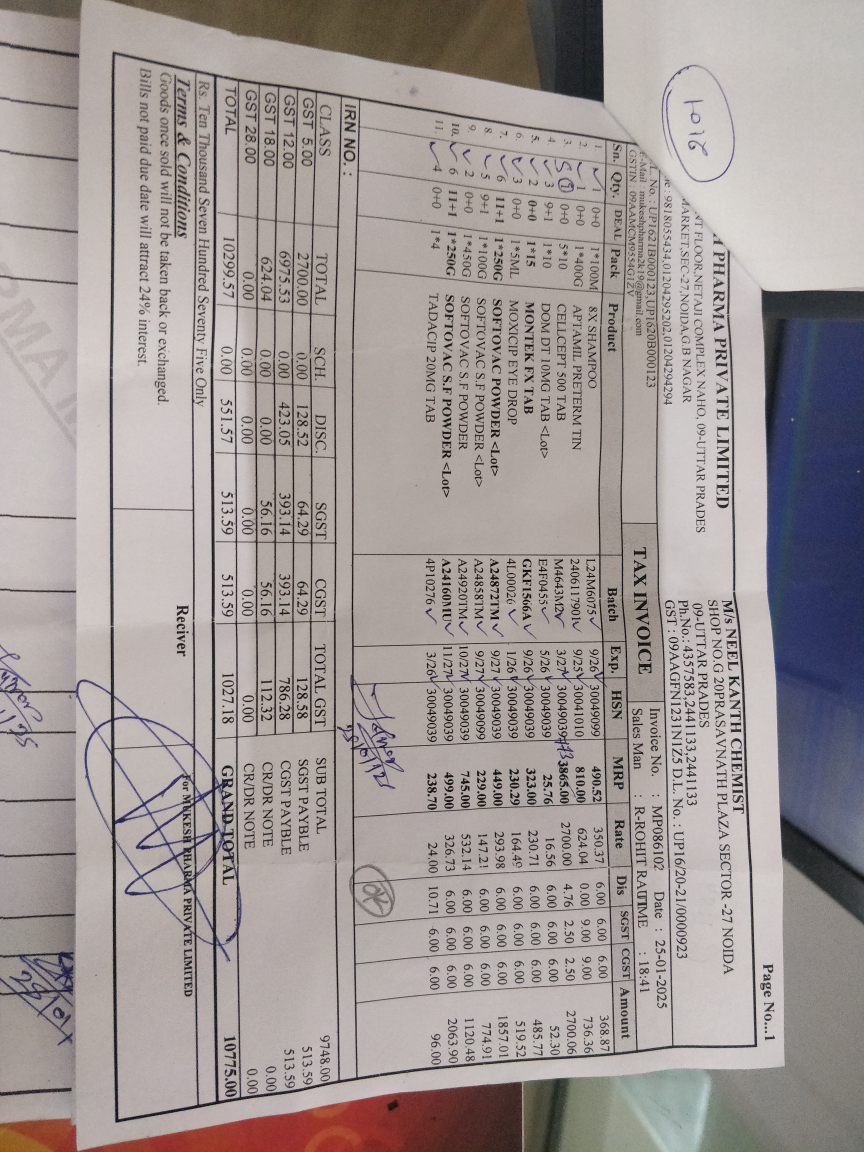 Page No...1
H PHARMA PRIVATE LIMITED
NT FLOOR,NETAJI COMPLEX NAHO, 09-UTTAR PRADES
MARKET,SEC-27,NOIDA,G B NAGAR
ne : 9818055434,01204295202,01204294294
L. No. : UP1621B000123,UP1620B000123
E-Mail : mukeshpharma2k19@gmail.com
GSTIN : 09AAMCM9554G1ZV
1018
M/s NEEL KANTH CHEMIST
SHOP NO.G 20PRASAVNATH PLAZA SECTOR -27 NOIDA
09-UTTAR PRADES
Ph.No.: 4357583,2441133,2441133
GST : 09AAGFN1231N1Z5 D.L. No. : UP16/20-21/0000923
TAX INVOICE
Invoice No. : MP086102 Date : 25-01-2025
Sales Man : R-ROHIT RAUTIME : 18:41
Sn. Qty. DEAL Pack Product Batch Exp. HSN MRP Rate Dis SGST CGST Amount
1. 1 0+0 1*100M 8X SHAMPOO L24M6075 9/26 30049099 490.52 350.37 6.00 6.00 6.00 368.87
2. 1 0+0 1*400G APTAMIL PRETERM TIN 2406117901 9/25 30041010 810.00 624.04 0.00 9.00 9.00 736.36
3. 0+0 5*10 CELLCEPT 500 TAB M4643M2 3/27 30049039 3865.00 2700.00 4.76 2.50 2.50 2700.06
4. 3 9+1 1*10 DOM DT 10MG TAB <Lot> E4F0455 5/26 30049039 25.76 16.56 6.00 6.00 6.00 52.30
5. 2 0+0 1*15 MONTEK FX TAB GKF1566A 9/26 30049039 323.00 230.71 6.00 6.00 6.00 485.77
6. 3 0+0 1*5ML MOXICIP EYE DROP 4L00026 1/26 30049039 230.29 164.49 6.00 6.00 6.00 519.52
7. 6 11+1 1*250G SOFTOVAC POWDER <Lot> A24872TM 9/27 30049039 449.00 293.98 6.00 6.00 6.00 1857.01
8. 5 9+1 1*100G SOFTOVAC S.F POWDER <Lot> A24858TM 9/27 30049099 229.00 147.21 6.00 6.00 6.00 774.91
9. 2 0+0 1*450G SOFTOVAC S.F POWDER A24920TM 10/27 30049039 745.00 532.14 6.00 6.00 6.00 1120.48
10. 6 11+1 1*250G SOFTOVAC S.F POWDER <Lot> A24160MU 11/27 30049039 499.00 326.73 6.00 6.00 6.00 2063.90
11. 4 0+0 1*4 TADACIP 20MG TAB 4P10276 3/26 30049039 238.70 24.00 10.71 6.00 6.00 96.00
OK
IRN NO. :
CLASS TOTAL SCH. DISC. SGST CGST TOTAL GST
GST 5.00 2700.00 0.00 128.52 64.29 64.29 128.58
GST 12.00 6975.53 0.00 423.05 393.14 393.14 786.28
GST 18.00 624.04 0.00 0.00 56.16 56.16 112.32
GST 28.00 0.00 0.00 0.00 0.00 0.00 0.00
TOTAL 10299.57 0.00 551.57 513.59 513.59 1027.18
SUB TOTAL 9748.00
SGST PAYBLE 513.59
CGST PAYBLE 513.59
CR/DR NOTE 0.00
CR/DR NOTE 0.00
GRAND TOTAL 10775.00
Rs. Ten Thousand Seven Hundred Seventy Five Only
Terms & Conditions
Goods once sold will not be taken back or exchanged.
Bills not paid due date will attract 24% interest.
Reciver
For MUKESH PHARMA PRIVATE LIMITED